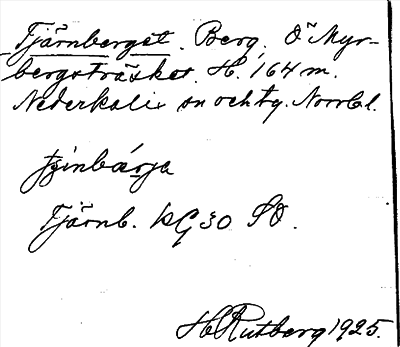 Tjärnberget. Berg, Ö Myr-
bergsträsket. H. 164 m.
Nederkalix sn och tg. Norrb l.
Tjärnb. KG 30 SO.
H Rutberg 1925.